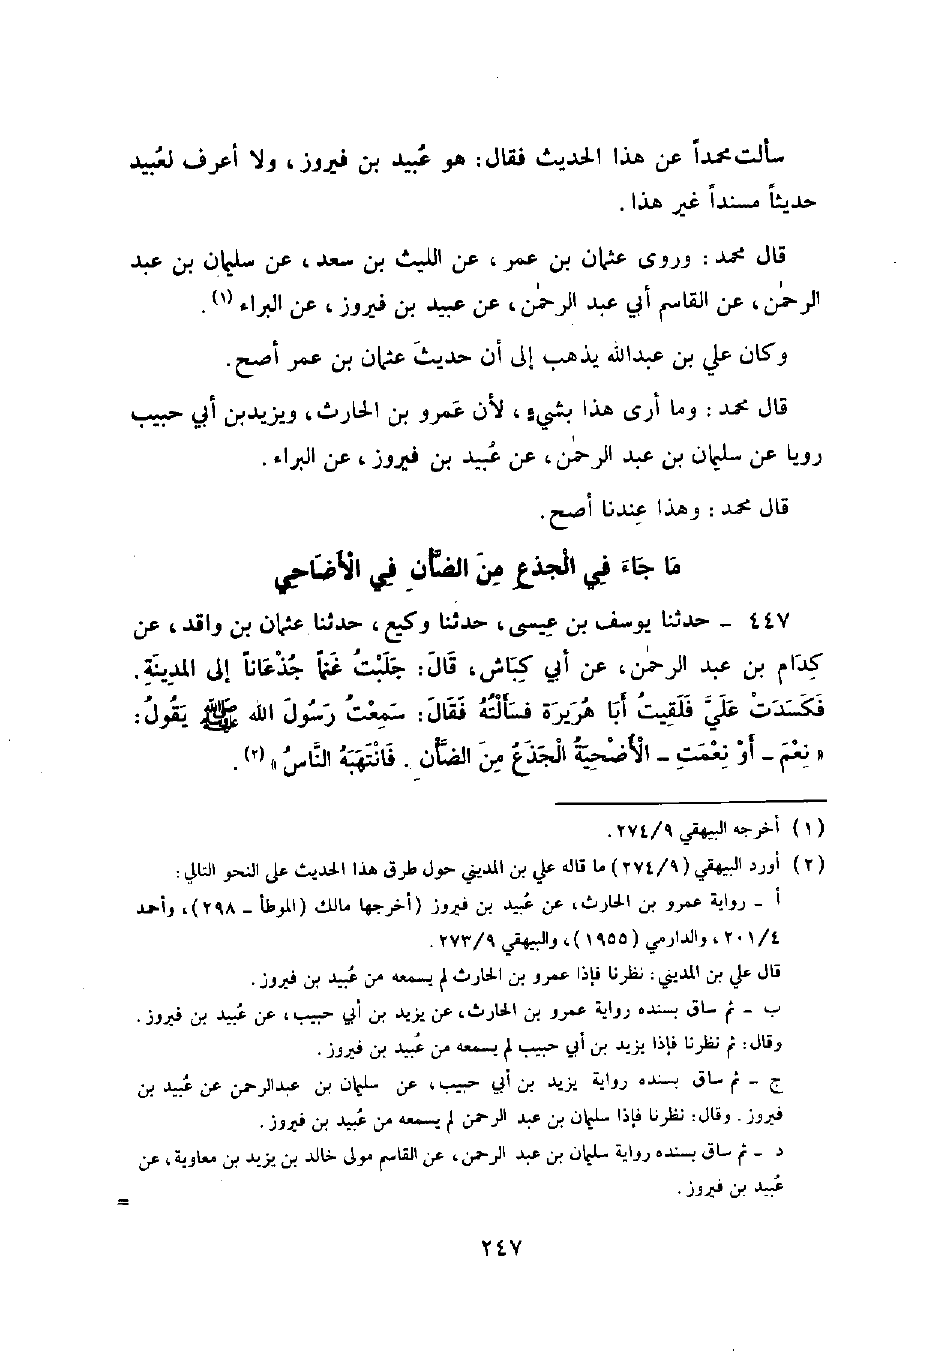 سألت محمداً عن هذا الحديث فقال: هو عُبيد بن فيروز، ولا أعرف لعُبيد
حديثاً مسنداً غير هذا.
قال محمد: وروى عثمان بن عمر، عن الليث بن سعد، عن سليمان بن عبد
الرحمٰن، عن القاسم أبي عبد الرحمٰن، عن عبيد بن فيروز، عن البراء (١).
وكان علي بن عبدالله يذهب إلى أن حديثَ عثمان بن عمر أصح.
قال محمد: وما أرى هذا بشيء، لأن عَمرو بن الحارث، ويزيدبن أبي حبيب
رويا عن سليمان بن عبد الرحمٰن، عن عُبيد بن فيروز، عن البراء.
قال محمد: وهذا عِندنا أصح.
مَا جَاءَ فِي الْجذعِ مِنَ الضَّأنِ فِي الْأضَاحِي
٤٤٧ - حدثنا يوسف بن عِيسى، حدثنا وكيع، حدثنا عثمان بن واقد، عن
كِدَام بن عبد الرحمٰن، عن أبي كِبَاش، قَالَ: جَلَبْتُ غَنماً جُذْعَاناً إلى المدِينَةِ.
فَكَسَدَتْ عَلَيَّ فَلَقِيتُ أبَا هُرَيرَة فَسألْتُهُ فَقَالَ: سَمِعْتُ رَسُولَ الله ﷺ يَقُولُ:
«نِعْمَ - أوْ نِعْمَتِ - الْأضْحِيَةُ الْجَذَعُ مِنَ الضَّأن. فَانْتَهَبَهُ النَّاسُ» (٢).
(١) أخرجه البيهقي ٢٧٤/٩.
(٢) أورد البيهقي (٢٧٤/٩) ما قاله علي بن المديني حول طرق هذا الحديث على النحو التالي:
أ - رواية عمرو بن الحارث، عن عُبيد بن فيروز (أخرجها مالك (الموطأ - ٢٩٨)، وأحمد
٢٠١/٤، والدارمي (١٩٥٥)، والبيهقي ٢٧٣/٩.
قال علي بن المديني: نظرنا فإذا عمرو بن الحارث لم يسمعه من عُبيد بن فيروز.
ب - ثم ساق بسنده رواية عمرو بن الحارث، عن يزيد بن أبي حبيب، عن عُبيد بن فيروز.
وقال: ثم نظرنا فإذا يزيد بن أبي حبيب لم يسمعه من عُبيد بن فيروز.
ج - ثم ساق بسنده رواية يزيد بن أبي حبيب، عن سليمان بن عبدالرحمن عن عُبيد بن
فيروز. وقال: نظرنا فإذا سليمان بن عبد الرحمن لم يسمعه من عُبيد بن فيروز.
د - ثم ساق بسنده رواية سليمان بن عبد الرحمن، عن القاسم مولى خالد بن يزيد بن معاوية، عن
عُبيد بن فيروز.
=
٢٤٧